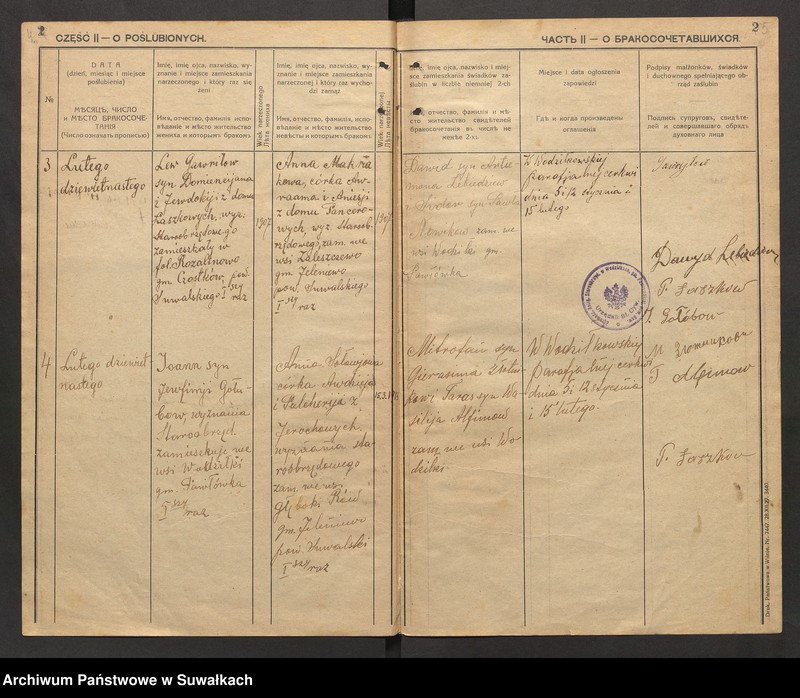 2
2
CZĘŚĆ II — O POŚLUBIONYCH.
ЧАСТЬ II — О БРАКОСОЧЕТАВШИХСЯ.
№
DATA
(dzień, miesiąc i miejsce
poślubienia)
МѢСЯЦЪ, ЧИСЛО
и МѢСТО БРАКОСОЧЕ-
ТАНІЯ
(Число означать прописью)
Imię, imię ojca, nazwisko, wy-
znanie i miejsce zamieszkania
narzeczonego i który raz się
żeni
Имя, отчество, фамилія, испо-
вѣданіе и мѣсто жительство
жениха и которымъ бракомъ
Wiek narzeczonego
Лѣта жениха
Imię, imię ojca, nazwisko, wy-
znanie i miejsce zamieszkania
narzeczonej i który raz wycho-
dzi zamąż
Имя, отчество, фамилія, испо-
вѣданіе и мѣсто жительство
невѣсты и которымъ бракомъ
Wiek narzeczonej
Лѣта невѣсты
imię ojca, nazwisko i miej-
sce zamieszkania świadków za-
ślubin w liczbie niemniej 2-ch
отчество, фамилія и мѣ-
сто жительство свидѣтелей
бракосочетанія въ числѣ не
менѣе 2-хъ
Miejsce i data ogłoszenia
zapowiedzi
Гдѣ и когда произведены
оглашенія
Podpisy małżonków, świadków
i duchownego spełniającego ob-
rząd zaślubin
Подпись супруговъ, свидѣте-
лей и совершавшаго обрядъ
духовнаго лица
3
Lutego
dziewiętnastego
Lew Gawriłow
syn Domiencjana
i Jewdokji z domu
Łaszkowych, wyz.
Staroobrzędowego
zamieszkały w
fol. Rozalinowo
gm. Czostków, pow.
Suwalskiego I szy
raz
1907
Anna
kowa, córka Aw-
raama i
z domu
wych, wyz. Staroob.
rzędowego, zam. we
wsi Zaleszczewo
gm. Jeleniewo
pow. Suwalskiego
I szy
raz
1907
Dawid syn Arta
mona Lebiedziew
i Fiodor syn
zam. we
wsi gm.
Pawłówka
W Wodziłkowskiej
parafjalnej cerkwi
dnia 5 i 12 stycznia i
15 lutego
Gawryłow
Dawyd Lebiedziew
T. Łaszkow
4
Lutego dziewięt
nastego
Joann syn
Jewfimji Gołu-
bow, wyznania
Staroobrzęd.
zamieszkuje we
wsi Wodziłki
gm. Pawłówka
I szy
raz
Anna Sołowjowa
córka Awdieja
i Pelcherja z
Jerochowych
wyznania sta-
roobrzędowego
zam. we wsi
Głęboki Rów
gm. Jeleniewo
pow. Suwalski
I szy
raz
Mitrofan syn
Gierasima Złotni
kowi Taras syn Wa-
silija Alfimow
zam. we wsi Wo
dziłki.
W Wodziłkowskiej
parafjalnej cerkwi
dnia 5 i 12 stycznia
i 15 lutego.
J. Gołubow
М Злотников
T Alfimow
T. Łaszkow
Druk. Państwowa w Wilnie, Nr. 3447.
Archiwum Państwowe w Suwałkach